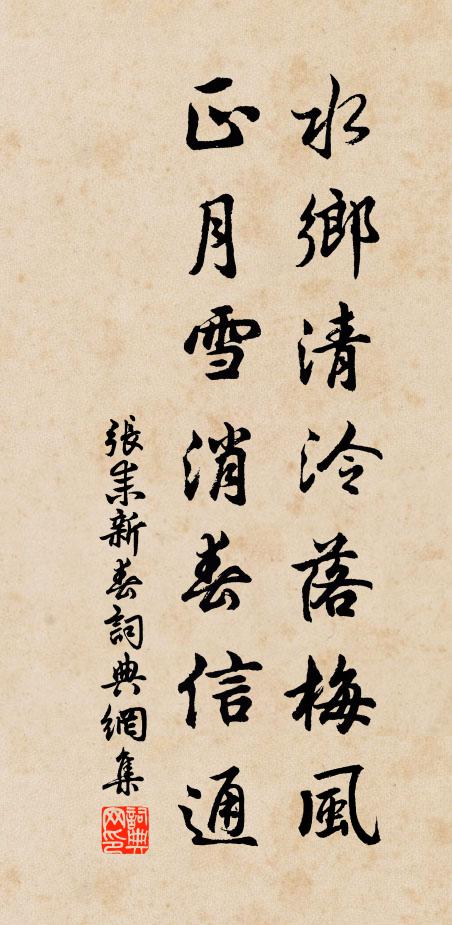 水鄉清泠落梅風
正月雪消春信通
張耒新春詞典網集
詞典
网印